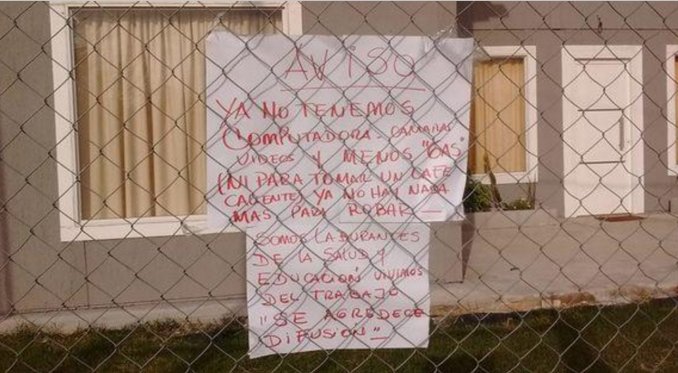 AVISO
YA NO TENEMOS
COMPUTADORA CAMARAS
VIDEOS Y MENOS "GAS"
(NI PARA TOMAR UN CAFE
CALIENTE) YA NO HAY NADA
MAS PARA ROBAR —
SOMOS LABURANTES
DE LA SALUD Y
EDUCACION VIVIMOS
DEL TRABAJO
"SE AGREDECE
DIFUSION" —